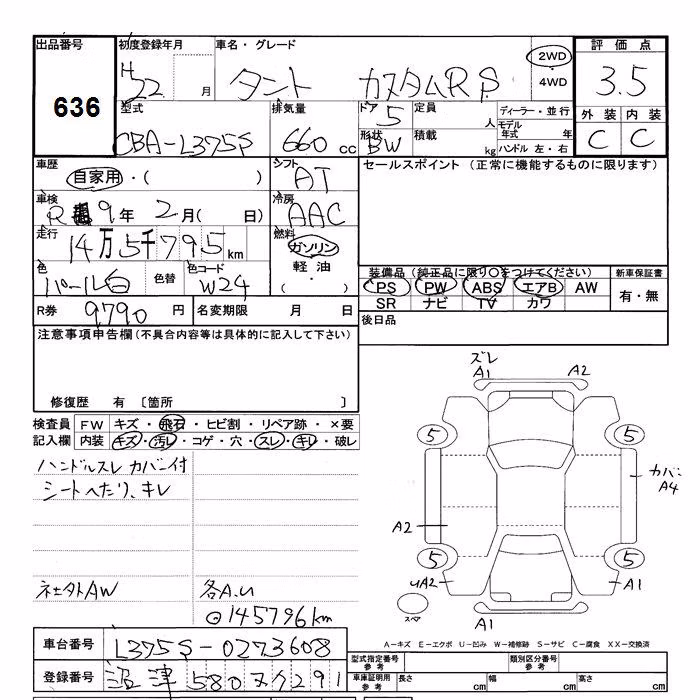 出品番号 初度登録年月 車名・グレード 評価点
636
H22 月 タント カスタムRS 2WD 4WD 3.5
型式 CBA-L375S 排気量 660 cc
ドア 5 定員 人 ディーラー・並行
形状 BW 積載 kg モデル年式 年 ハンドル 左・右
外装 内装
C C
車歴 自家用・( ) シフト AT
セールスポイント(正常に機能するものに限ります)
車検 R 9年 2月( 日) 冷房 AAC
走行 14万5千795km 燃料 ガソリン 軽油 ・( )
色 パール白 色替 色コード W24
装備品(純正品に限り○をつけてください) 新車保証書
PS PW ABS エアB AW 有・無
SR ナビ TV カワ
R券 9790 円 名変期限 月 日
後日品
注意事項申告欄(不具合内容等は具体的に記入して下さい)
修復歴 有 〔箇所 〕
検査員記入欄 FW キズ・飛石・ヒビ割・リペア跡・×要
内装 キズ・汚レ・コゲ・穴・スレ・キレ・破レ
ハンドルスレ カバー付
シートへたり、キレ
ネ土外AW 各A.U
⊙145796km
ズレ
A1 A2
5 5
カバー
A4
A2
5 5
UA2 A1
スペア
A1
A-キズ E-エクボ U-凹み W-補修跡 S-サビ C-腐食 XX-交換済
車台番号 L375S-0273608
型式指定番号 参考 類別区分番号 参考
登録番号 沼津 580 ヌ 291
車庫証明用 参考 長さ cm 幅 cm 高さ cm